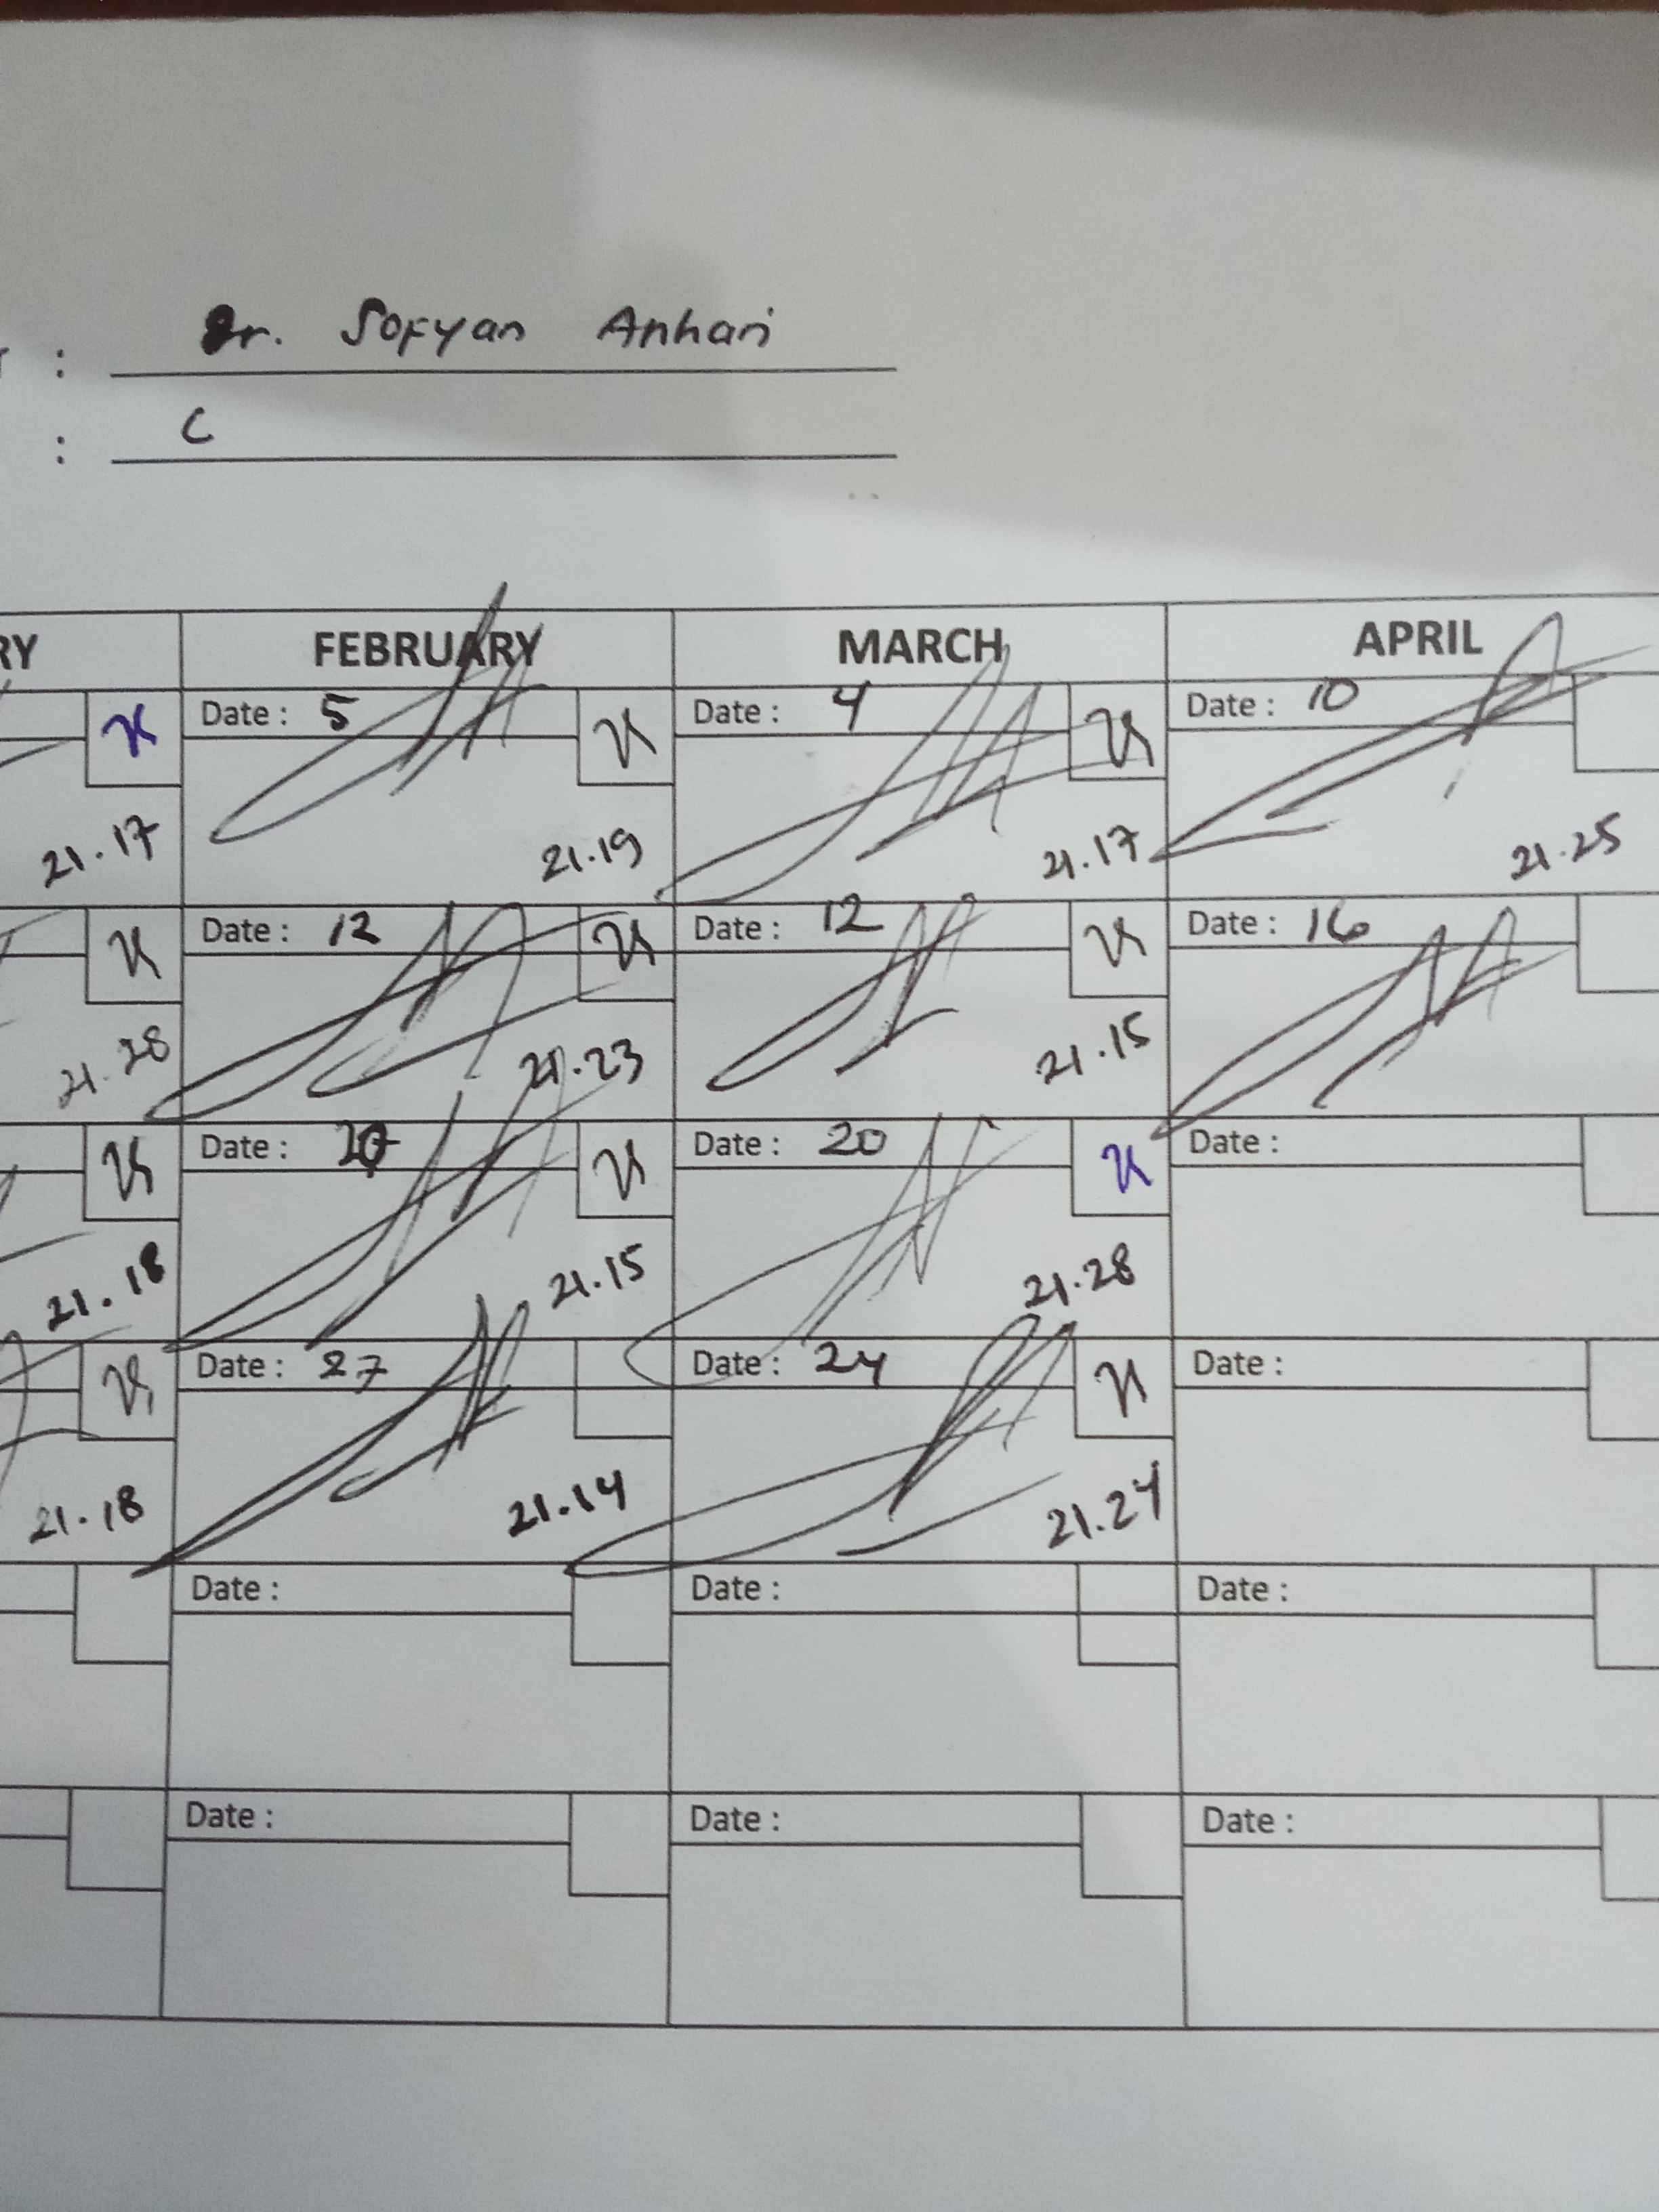 : Dr. Sofyan Anhari
: C
RY FEBRUARY MARCH APRIL
Date : 5 Date : 4 Date : 10
21.17 21.19 21.17 21.25
Date : 12 Date : 12 Date : 16
21.28 21.23 21.15
Date : Date : 20 Date :
21.18 21.15 21.28
Date : 27 Date : 24 Date :
21.18 21.14 21.24
Date : Date : Date :
Date : Date : Date :